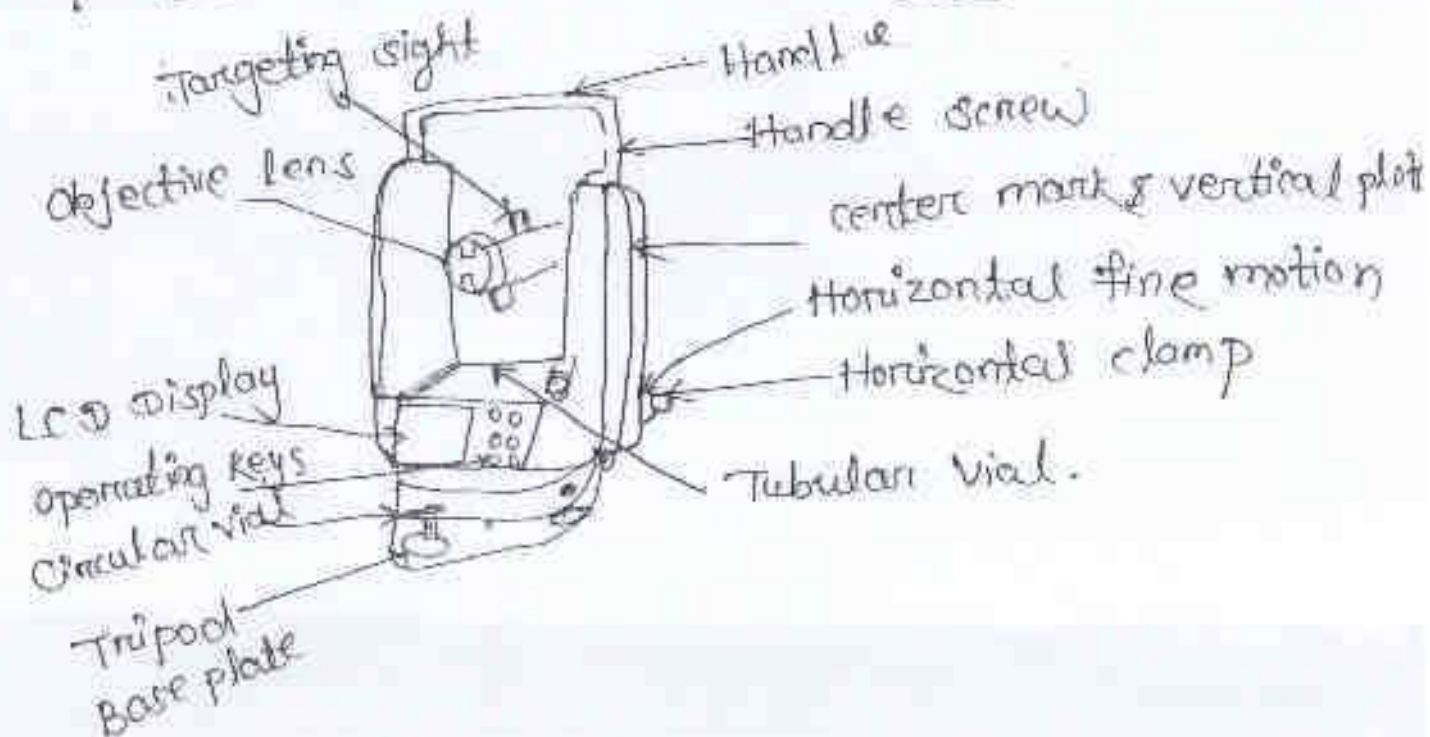 Targeting sight
Handle
Handle screw
Objective lens
center mark & vertical plot
Horizontal fine motion
Horizontal clamp
LCD Display
operating keys
Circular vial
Tubular vial.
Tripod
Base plate